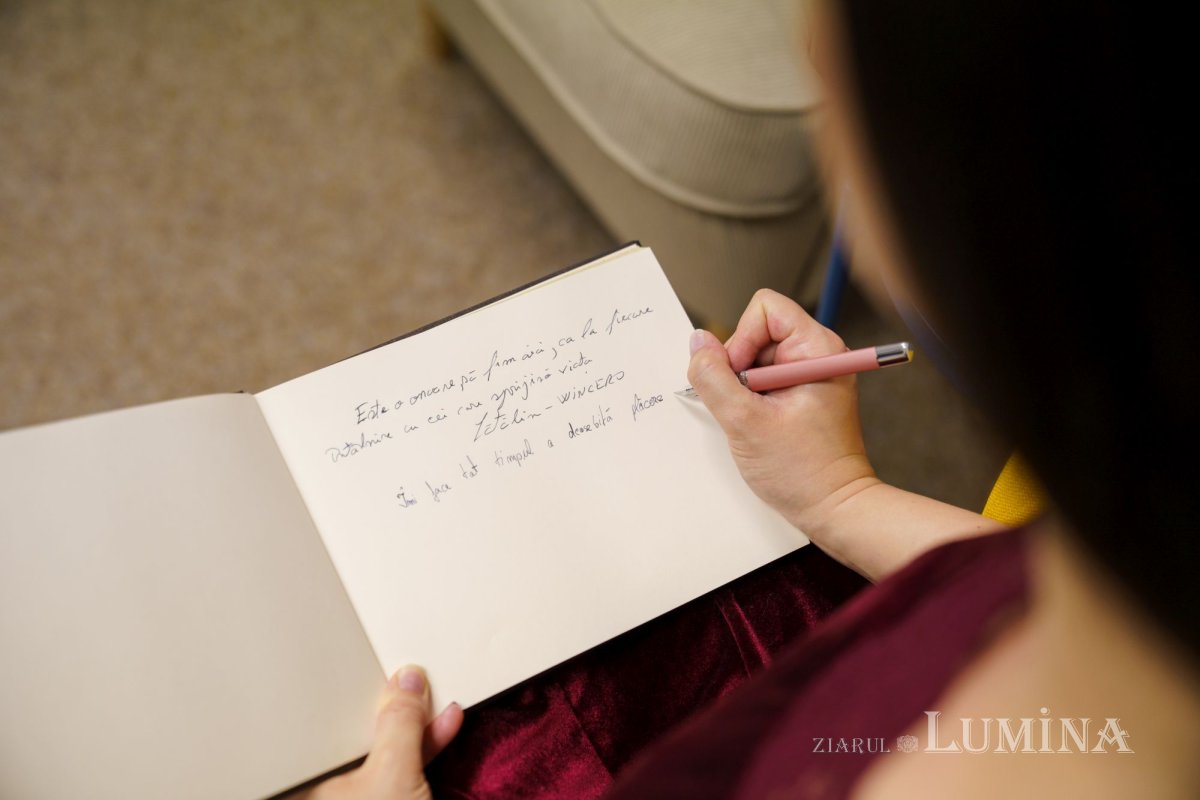 Este o onoare să fim aici, ca la fiecare
întâlnire cu cei care sprijină viața
Cătălin - WINCERO
Îmi face tot timpul a deosebită plăcere
ZIARUL LUMINA